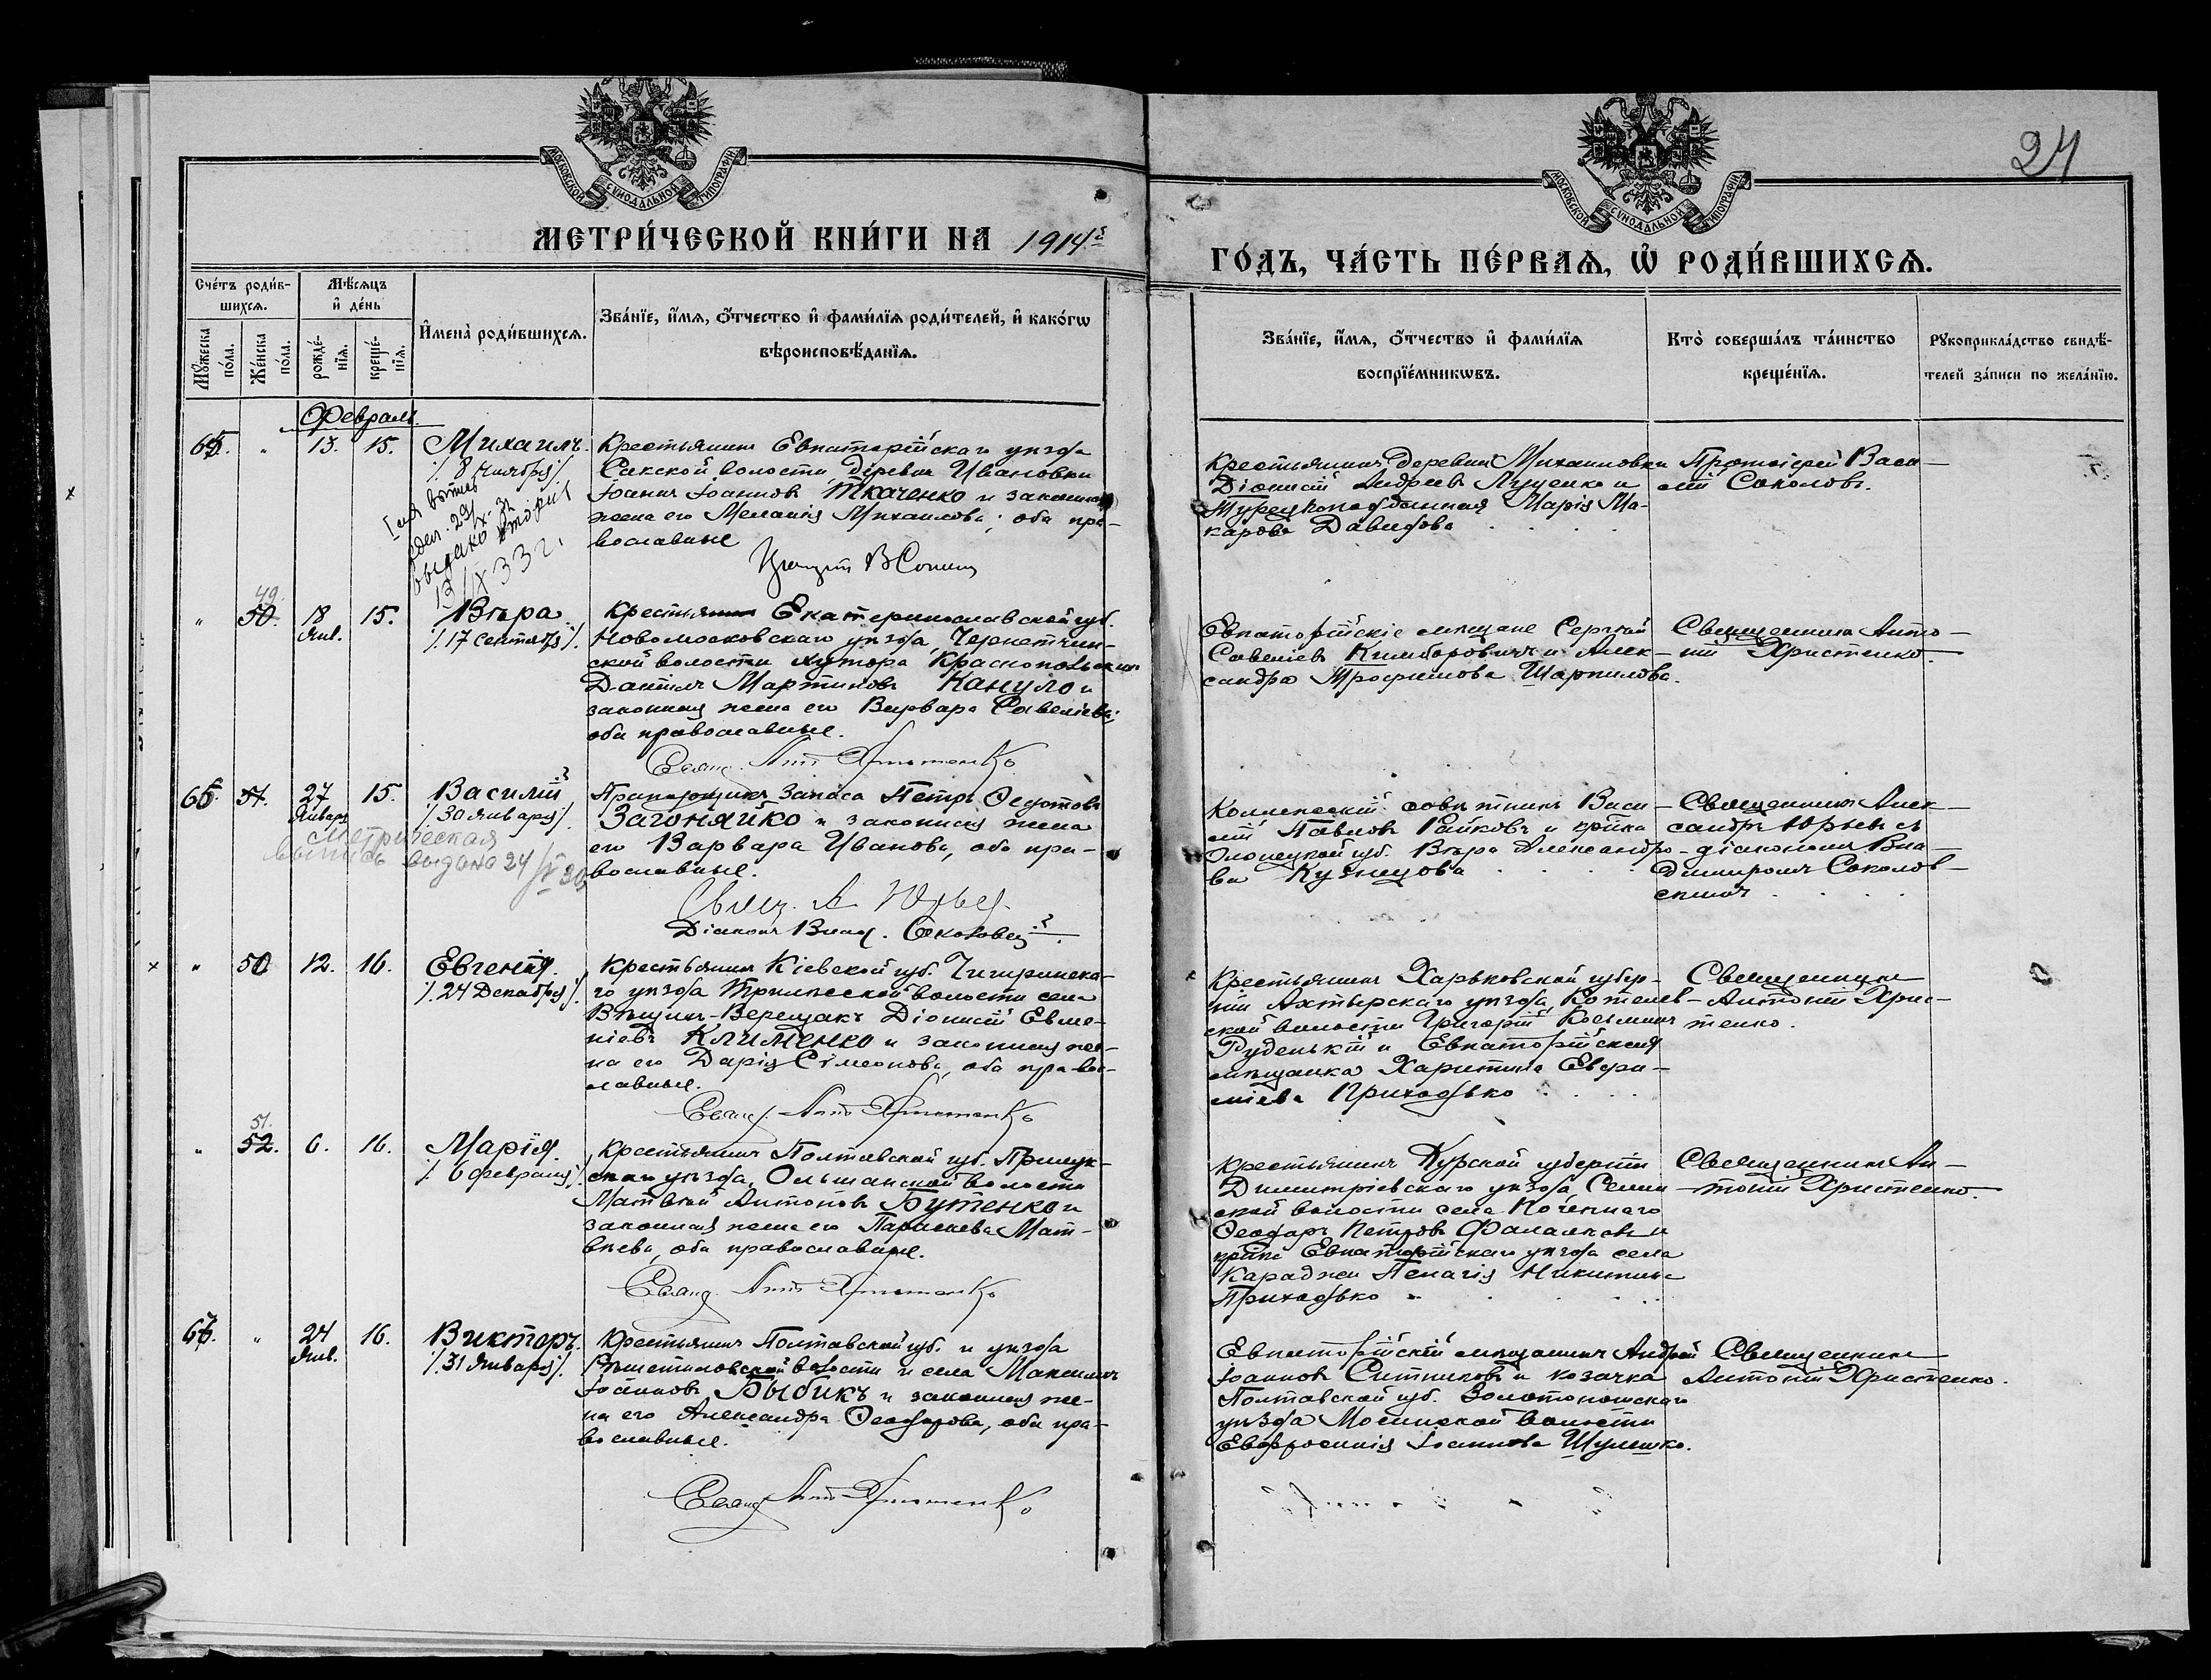 24
МОСКОВСКОЙ СѴНОДАЛЬНОЙ ТИПОГРАФІИ
МОСКОВСКОЙ СѴНОДАЛЬНОЙ ТИПОГРАФІИ
МЕТРИ́ЧЕСКОЙ КНИ́ГИ НА 1914й
ГО́ДЪ, ЧА́СТЬ ПЕ́РВАѦ, Ѡ҆ РОДИ́ВШИХСѦ.
Сче́тъ роди́в-
шихсѧ.
Мѣ́сѧцъ
и҆ де́нь
Мꙋ́жеска по́ла.
Же́нска по́ла.
рожде́-
нїѧ.
креще́-
нїѧ.
И҆мена̀ роди́вшихсѧ.
Зва́нїе, и҆́мѧ, ѻ҆́тчество и҆ фами́лїѧ роди́телей, и҆ како́гѡ
вѣроисповѣ́данїѧ.
Зва́нїе, и҆́мѧ, ѻ҆́тчество и҆ фами́лїѧ
воспрїе́мникѡвъ.
Кто̀ соверша́лъ та́инство
креще́нїѧ.
Рꙋкоприкла́дство свидѣ́-
телей за́писи по жела́нїю.
Февраль
65. " 13. 15. Михаилъ.
/. 8 Ноября ./
выдано
13/IX 33 г.
Крестьянинъ Евпаторійскаго уѣзда
Сакской волости, деревни Ивановки
Іоаннъ Іоанновъ Ткаченко и законная
жена его Меланія Михаилова, оба пра-
вославные
Крестьянинъ деревни Михайловки
Діонисій Андреевъ Луценко и
Турецкоподданная Марія Ма-
карова Давидова
Протоіерей Васи-
лій Соколовъ.
49.
" 50. 18 Янв. 15. Вѣра
/. 17 Сентября ./
Крестьянинъ Екатеринославской губ.
Новомосковскаго уѣзда, Черетчин-
ской волости хутора Краснопольскаго
Даніилъ Мартиновъ Кануло и
законная жена его Варвара Савеліева;
оба православные.
Свящ. Ант Христенко
Евпаторійскіе мѣщане Сергѣй
Савеліевъ Кимборовичъ и Алек-
сандра Трофимова Шарпилова.
Священникъ Анто-
ній Христенко.
66. 51. 27 Январ. 15. Василій
/. 30 Января ./
Метрическая
выпись выдана 24/V 30
Прапорщикъ запаса Петръ Ѳеотовъ
Загоняйко и законная жена
его Варвара Иванова, оба пра-
вославные.
Свящ. А. Юрьев
Діаконъ Влад. Соколовскій
Коллежскій совѣтникъ Васи-
лій Павловъ Райковъ и кр-нка
Олонецкой губ. Вѣра Александро-
ва Кузнецова
Священникъ Алек-
сандръ Юрьевъ съ
діакономъ Вла-
диміромъ Соколов-
скимъ
" 50 12. 16. Евгенія.
/. 24 Декабря ./
Крестьянинъ Кіевской губ. Чигиринска-
го уѣзда Трилѣсской волости села
Вѣщикъ-Верещакъ Діонисій Евме-
ніевъ Клименко и законная же-
на его Дарія Симеонова, оба право-
славные.
Свящ. Ант Христенко
Крестьянинъ Харьковской губер-
ніи Ахтырскаго уѣзда Котелев-
ской волости Григорій Косьминъ
Руденькій и Евпаторійская
мѣщанка Харитина Евфи-
міева Приходько
Священникъ
Антоній Хрис-
тенко.
51.
" 52. 6. 16. Марія.
/. 6 Февраля ./
Крестьянинъ Полтавской губ. Прилук-
скаго уѣзда, Ольшанской волости
Матвѣй Антоновъ Бутенко и
законная жена его Параскева Мат-
вѣева, оба православные.
Свящ. Ант Христенко
Крестьянинъ Курской губерніи
Димитріевскаго уѣзда Селин-
ской волости села Коченнаго
Ѳеодоръ Петровъ Фалалѣевъ и
кр-нка Евпаторійскаго уѣзда села
Караджи Пелагія Никитина
Приходько
Священникъ Ан-
тоній Христенко.
67. " 24 Янв. 16. Викторъ.
/. 31 Января ./
Крестьянинъ Полтавской губ. и уѣзда
Рѣшетиловской волости и села Максимъ
Іоанновъ Быбикъ и законная же-
на его Александра Ѳеодорова, оба пра-
вославные.
Свящ Ант Христенко
Евпаторійскій мѣщанинъ Андрей
Іоанновъ Ситниковъ и козачка
Полтавской губ. Золотоношскаго
уѣзда Мосинской волости
Евфросинія Іоаннова Шулешко.
Священникъ
Антоній Христенко.